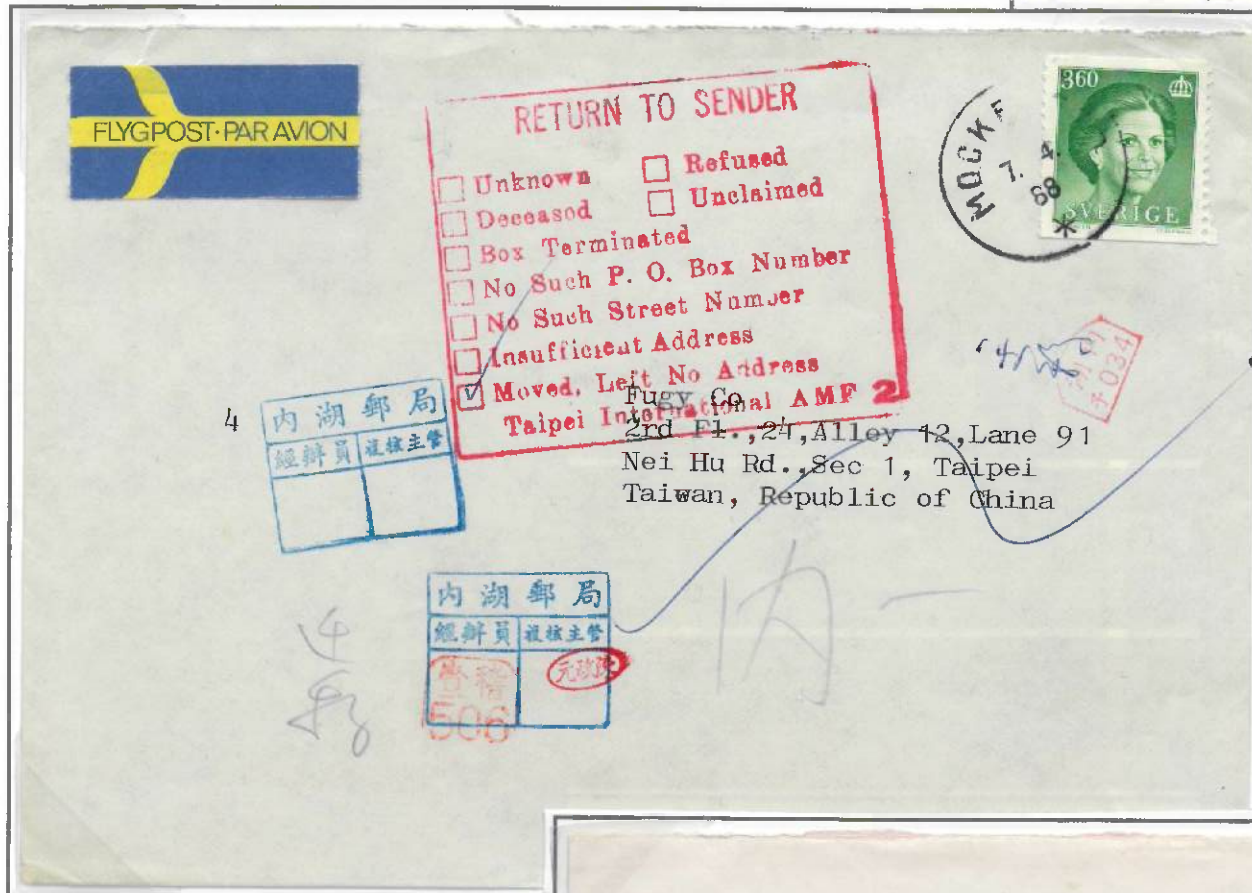 FLYGPOST·PAR AVION
RETURN TO SENDER
Unknown
Refused
Deceased
Unclaimed
Box Terminated
No Such P. O. Box Number
No Such Street Number
Insufficient Address
Moved, Left No Address
Taipei International AMF 2
360
SVERIGE
7. 4.
68
034
4
Fugy Co
2rd Fl.,24,Alley 12,Lane 91
Nei Hu Rd.,Sec 1, Taipei
Taiwan, Republic of China
內湖郵局
經辦員 複核主管
內湖郵局
經辦員 複核主管
506
內一